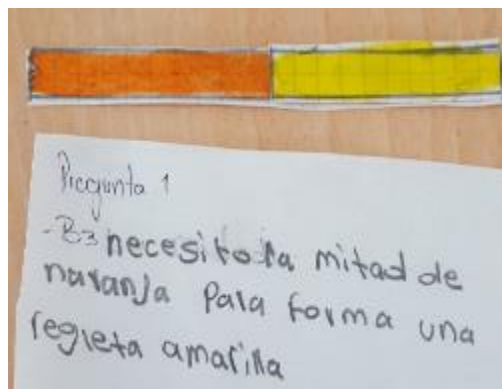 Pregunta 1
-B3 necesito la mitad de
naranja Para forma una
regleta amarilla